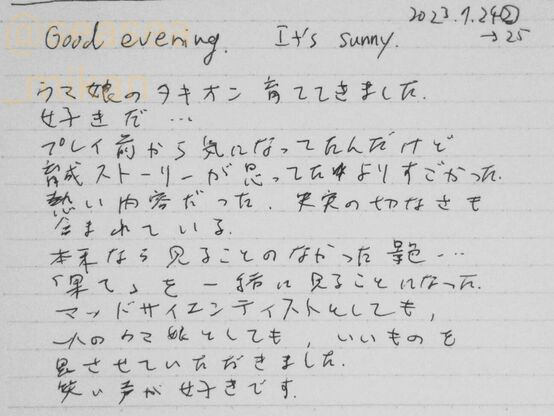 2023.7.24②
→25
Good evening. It's sunny.
ウマ娘のタキオン育ててきました.
好きだ…
プレイ前から気になってたんだけど
育成ストーリーが思ってたよりすごかった.
熱い内容だった. 史実の切なさも
含まれている.
本来なら見ることのなかった景色…
「果て」を一緒に見ることになった.
マッドサイエンティストとしても,
一人のウマ娘としても, いいものを
見させていただきました.
笑い声が好きです.